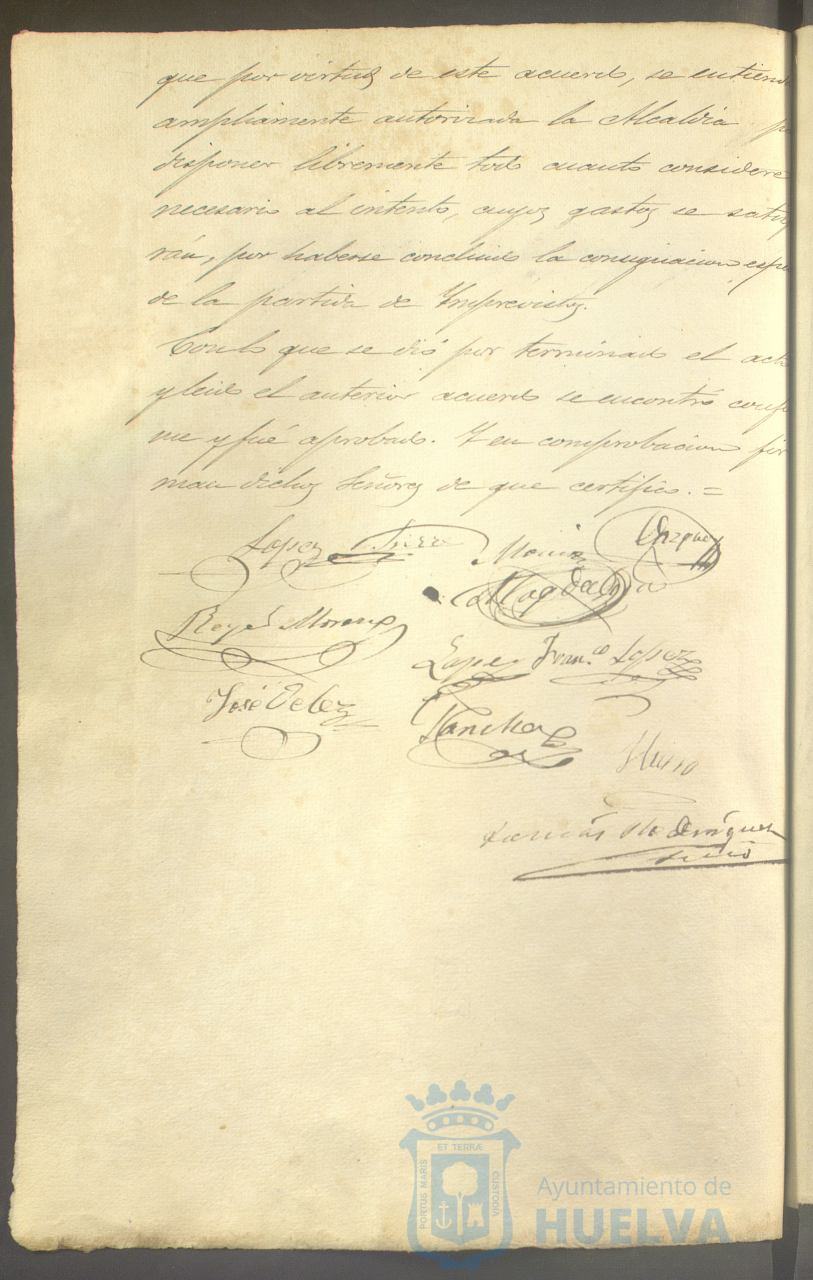 que por virtud de este acuerdo, se entiend
ampliamente autorizada la Alcaldia p
disponer libremente todo cuanto considere
necesario al intento, cuyos gastos se satis
rán, por haberse concluido la consignacion esp
de la partida de Imprevistos.
Con lo que se dió por terminado el acto
y leido el anterior acuerdo se encontró confo
me y fué aprobado. Y en comprobacion fir
man dichos Señores de que certifico. =
Lopez
Vazquez
Reyes Moreno
Lopez Fran.co Lopez
José Velez
Sanchez
Rodriguez
ET TERRÆ
PORTUS MARIS
CUSTODIA
Ayuntamiento de
HUELVA